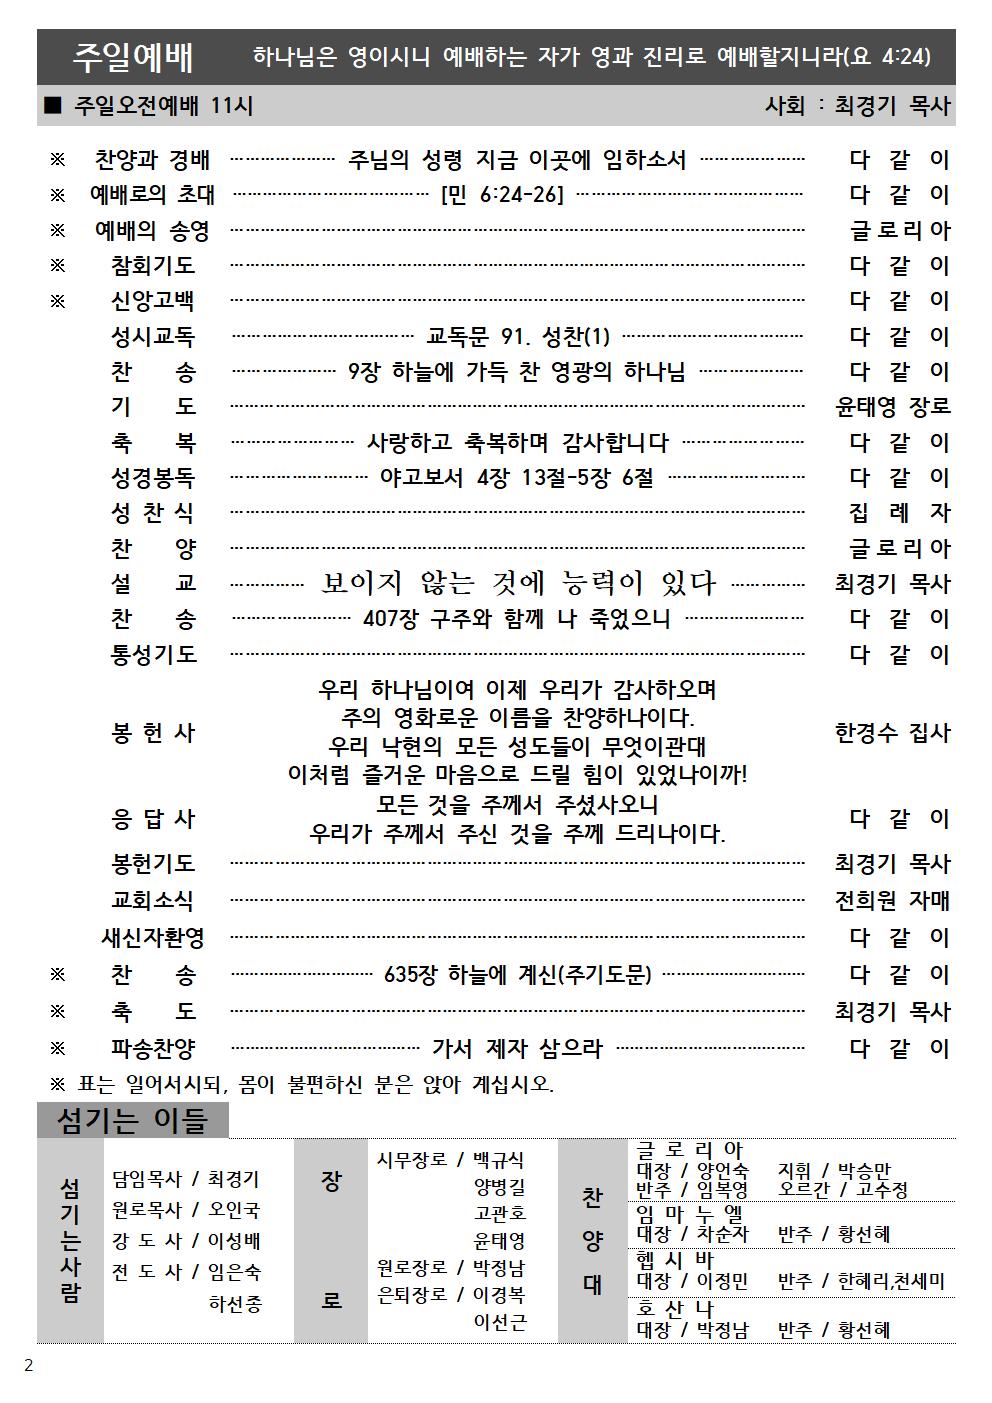 주일예배 하나님은 영이시니 예배하는 자가 영과 진리로 예배할지니라(요 4:24)
■ 주일오전예배 11시 사회 : 최경기 목사
※ 찬양과 경배 ………………… 주님의 성령 지금 이곳에 임하소서 ………………… 다 같 이
※ 예배로의 초대 ………………… [민 6:24-26] ………………… 다 같 이
※ 예배의 송영 ………………… 글로리아
※ 참회기도 ………………… 다 같 이
※ 신앙고백 ………………… 다 같 이
성시교독 ………………… 교독문 91. 성찬(1) ………………… 다 같 이
찬 송 ………………… 9장 하늘에 가득 찬 영광의 하나님 ………………… 다 같 이
기 도 ………………… 윤태영 장로
축 복 ………………… 사랑하고 축복하며 감사합니다 ………………… 다 같 이
성경봉독 ………………… 야고보서 4장 13절-5장 6절 ………………… 다 같 이
성 찬 식 ………………… 집 례 자
찬 양 ………………… 글로리아
설 교 …………… 보이지 않는 것에 능력이 있다 …………… 최경기 목사
찬 송 ………………… 407장 구주와 함께 나 죽었으니 ………………… 다 같 이
통성기도 ………………… 다 같 이
우리 하나님이여 이제 우리가 감사하오며
주의 영화로운 이름을 찬양하나이다.
봉 헌 사 한경수 집사
우리 낙현의 모든 성도들이 무엇이관대
이처럼 즐거운 마음으로 드릴 힘이 있었나이까!
모든 것을 주께서 주셨사오니
응 답 사 다 같 이
우리가 주께서 주신 것을 주께 드리나이다.
봉헌기도 ………………… 최경기 목사
교회소식 ………………… 전희원 자매
새신자환영 ………………… 다 같 이
※ 찬 송 ………………… 635장 하늘에 계신(주기도문) ………………… 다 같 이
※ 축 도 ………………… 최경기 목사
※ 파송찬양 ………………… 가서 제자 삼으라 ………………… 다 같 이
※ 표는 일어서시되, 몸이 불편하신 분은 앉아 계십시오.
섬기는 이들
섬기는사람
담임목사 / 최경기
원로목사 / 오인국
강 도 사 / 이성배
전 도 사 / 임은숙
하선종
장로
시무장로 / 백규식
양병길
고관호
윤태영
원로장로 / 박정남
은퇴장로 / 이경복
이선근
찬양대
글 로 리 아
대장 / 양언숙 지휘 / 박승만
반주 / 임복영 오르간 / 고수정
임 마 누 엘
대장 / 차순자 반주 / 황선혜
헵 시 바
대장 / 이정민 반주 / 한혜리,천세미
호 산 나
대장 / 박정남 반주 / 황선혜
2